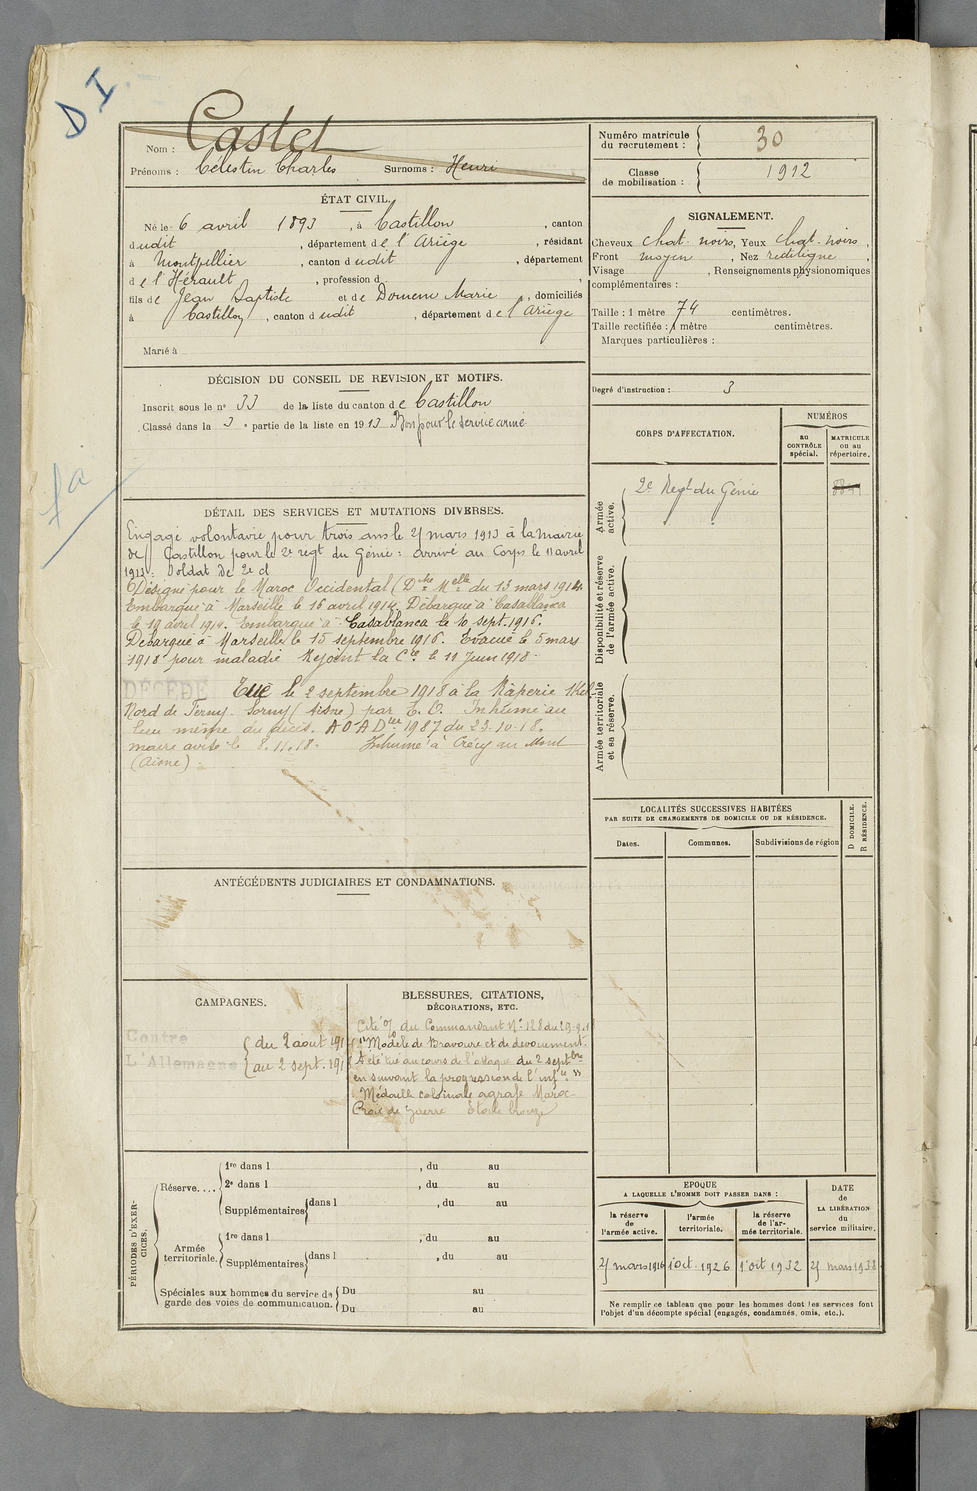 D I
Castel
Nom :
Prénoms : Célestin Charles Surnoms : Henri
ÉTAT CIVIL.
Né le 6 avril 1893, à Castillon, canton
dudit, département de l'Ariège, résidant
à Montpellier, canton dudit, département
de l'Hérault, profession d
fils de Jean Baptiste et de Domenc Marie, domiciliés
à Castillon, canton dudit, département de l'Ariège
Marié à
DÉCISION DU CONSEIL DE REVISION ET MOTIFS.
Inscrit sous le n° 33 de la liste du canton de Castillon
Classé dans la 3e partie de la liste en 1913 Bon pour le service armé
fa
DÉTAIL DES SERVICES ET MUTATIONS DIVERSES.
Engagé volontaire pour trois ans le 27 mars 1913 à la mairie
de Castillon pour le 2e regt du Génie : arrivé au Corps le 11 avril
1913 : Soldat de 2e cl
Désigné pour le Maroc Occidental (Dche Melle du 13 mars 1914.
Embarqué à Marseille le 16 avril 1914. Débarqué à Casablanca
le 19 avril 1914. Embarqué à Casablanca le 10 sept. 1916.
Débarqué à Marseille le 15 septembre 1916. Evacué le 5 mars
1918 pour maladie Rejoint la Cie le 11 Juin 1918.
DÉCÉDÉ Tué le 2 septembre 1918 à la Râperie 1 Kil
Nord de Terny-Sorny (Aisne) par E. O. Inhumé au
lieu même du décès. A O A Dier 1987 du 23-10-18.
maire avisé le 8.11.18. Inhumé à Crécy au Mont
(Aisne)
ANTÉCÉDENTS JUDICIAIRES ET CONDAMNATIONS.
CAMPAGNES.
Contre
L'Allemagne
du 2 aout 191
au 2 sept. 191
BLESSURES, CITATIONS,
DÉCORATIONS, ETC.
Cité O/ du Commandant N° 128 du
"Modèle de Bravoure et de dévouement.
A été tué au cours de l'attaque du 2 septbre
en suivant la progression de l'infie"
Médaille coloniale agrafe Maroc
Croix de Guerre Etoile bronze
PÉRIODES D'EXERCICES.
Réserve....
1re dans l , du au
2e dans l , du au
Supplémentaires dans l , du au
Armée territoriale.
1re dans l , du au
Supplémentaires dans l , du au
Spéciales aux hommes du service de
garde des voies de communication.
Du au
Du au
Numéro matricule
du recrutement : 30
Classe
de mobilisation : 1912
SIGNALEMENT.
Cheveux chat. noirs, Yeux chat. noirs,
Front moyen, Nez rectiligne,
Visage , Renseignements physionomiques
complémentaires :
Taille : 1 mètre 74 centimètres.
Taille rectifiée : 1 mètre centimètres.
Marques particulières :
Degré d'instruction : 3
CORPS D'AFFECTATION.
NUMÉROS
au
CONTRÔLE
spécial.
MATRICULE
ou au
répertoire.
Armée
active.
2e Regt du Génie
Disponibilité et réserve
de l'armée active.
Armée territoriale
et sa réserve.
LOCALITÉS SUCCESSIVES HABITÉES
PAR SUITE DE CHANGEMENTS DE DOMICILE OU DE RÉSIDENCE.
Dates. Communes. Subdivisions de région
D DOMICILE.
R RÉSIDENCE.
EPOQUE
A LAQUELLE L'HOMME DOIT PASSER DANS :
la réserve
de
l'armée active.
l'armée
territoriale.
la réserve
de l'ar-
mée territoriale.
DATE
de
LA LIBÉRATION
du
service militaire.
27 mars 1916 1 oct. 1926 1 oct 1932 27 mars 1938
Ne remplir ce tableau que pour les hommes dont les services font
l'objet d'un décompte spécial (engagés, condamnés, omis, etc.).